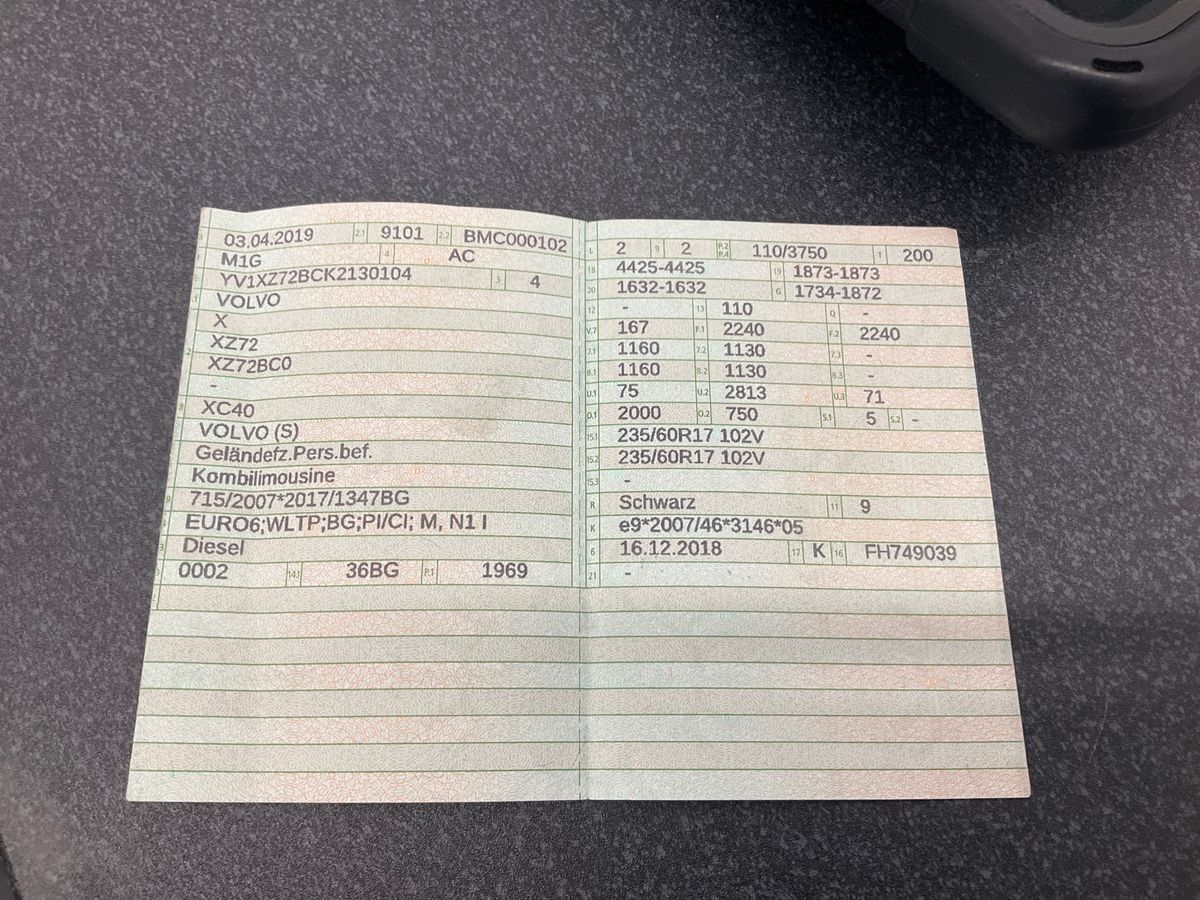 03.04.2019 2.1 9101 2.2 BMC000102
M1G 4 AC
YV1XZ72BCK2130104 3 4
VOLVO
X
XZ72
XZ72BC0
-
XC40
VOLVO (S)
Geländefz.Pers.bef.
Kombilimousine
715/2007*2017/1347BG
EURO6;WLTP;BG;PI/CI; M, N1 I
Diesel
0002 14.1 36BG P.1 1969
L 2 9 2 P.2 P.4 110/3750 T 200
18 4425-4425 19 1873-1873
20 1632-1632 G 1734-1872
12 - 13 110 Q -
V.7 167 F.1 2240 F.2 2240
7.1 1160 7.2 1130 7.3 -
8.1 1160 8.2 1130 8.3 -
U.1 75 U.2 2813 U.3 71
O.1 2000 O.2 750 S.1 5 S.2 -
15.1 235/60R17 102V
15.2 235/60R17 102V
15.3 -
R Schwarz 11 9
K e9*2007/46*3146*05
6 16.12.2018 17 K 16 FH749039
21 -